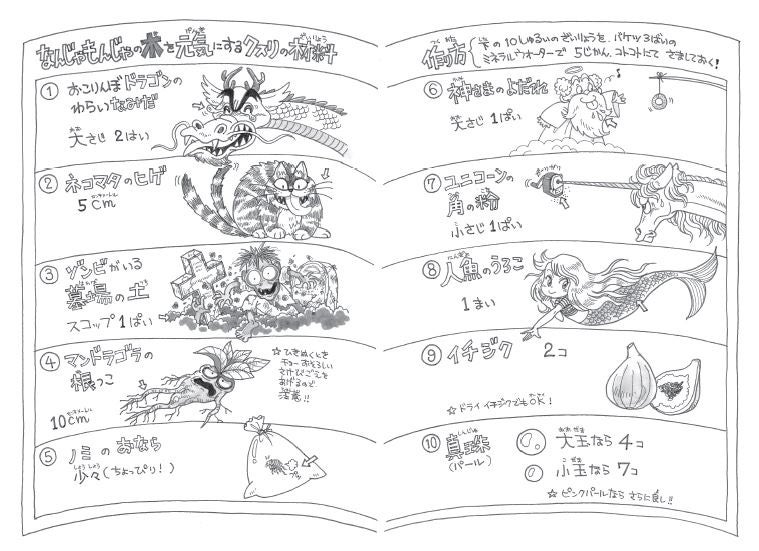 なんじゃもんじゃの木を元気にするクスリの材料
① おこりんぼドラゴンの
わらいなみだ
大さじ 2はい
② ネコマタのヒゲ
5cm
③ ゾンビがいる
墓場の土
スコップ1ぱい
④ マンドラゴラの
根っこ
10cm
☆ひきぬくとき
チョーおそろしい
さけびごえを
あげるので
注意!!
⑤ ノミのおなら
少々(ちょっぴり!)
プッ
作り方 下の10しゅるいのざいりょうを、バケツ3ばいの
ミネラルウォーターで 5じかん、コトコトにて さましておく!
⑥ 神さまのよだれ
大さじ 1ぱい
⑦ ユニコーンの
角の粉
小さじ1ぱい
ガーリガリ
⑧ 人魚のうろこ
1まい
⑨ イチジク 2コ
☆ドライイチジクでもOK!
⑩ 真珠
(パール)
大玉なら 4コ
小玉なら 7コ
☆ピンクパールなら さらに良し!!